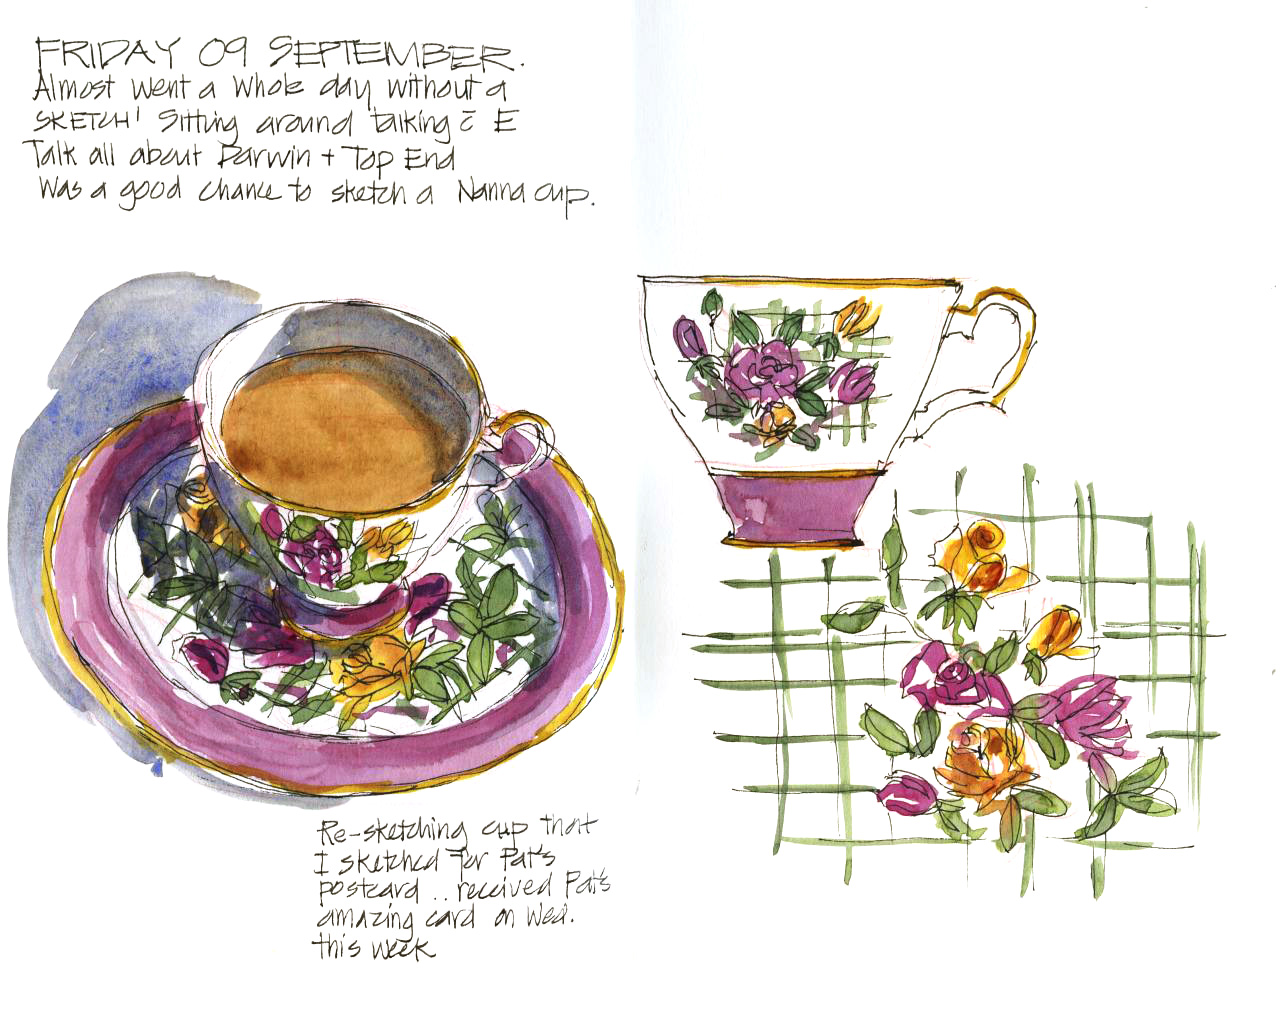 FRIDAY 09 SEPTEMBER.
Almost went a whole day without a
SKETCH! Sitting around talking c̄ E
Talk all about Darwin + Top End
Was a good chance to sketch a Nanna cup.
Re-sketching cup that
I sketched for Pat's
postcard .. received Pat's
amazing card on Wed.
this week